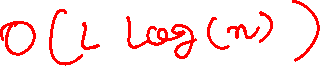 O(L log(n))